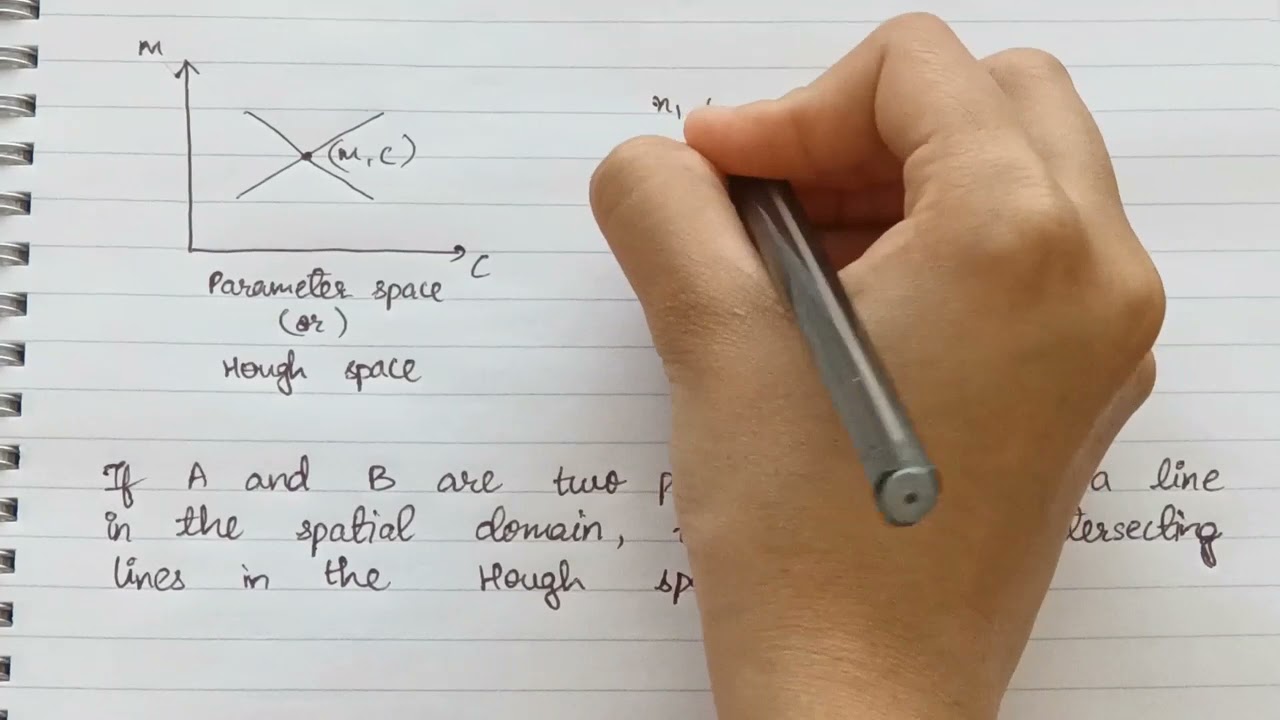 m
(m, c)
c
Parameter space
(or)
Hough space
x1
If A and B are two a line
in the spatial domain,
lines in the Hough